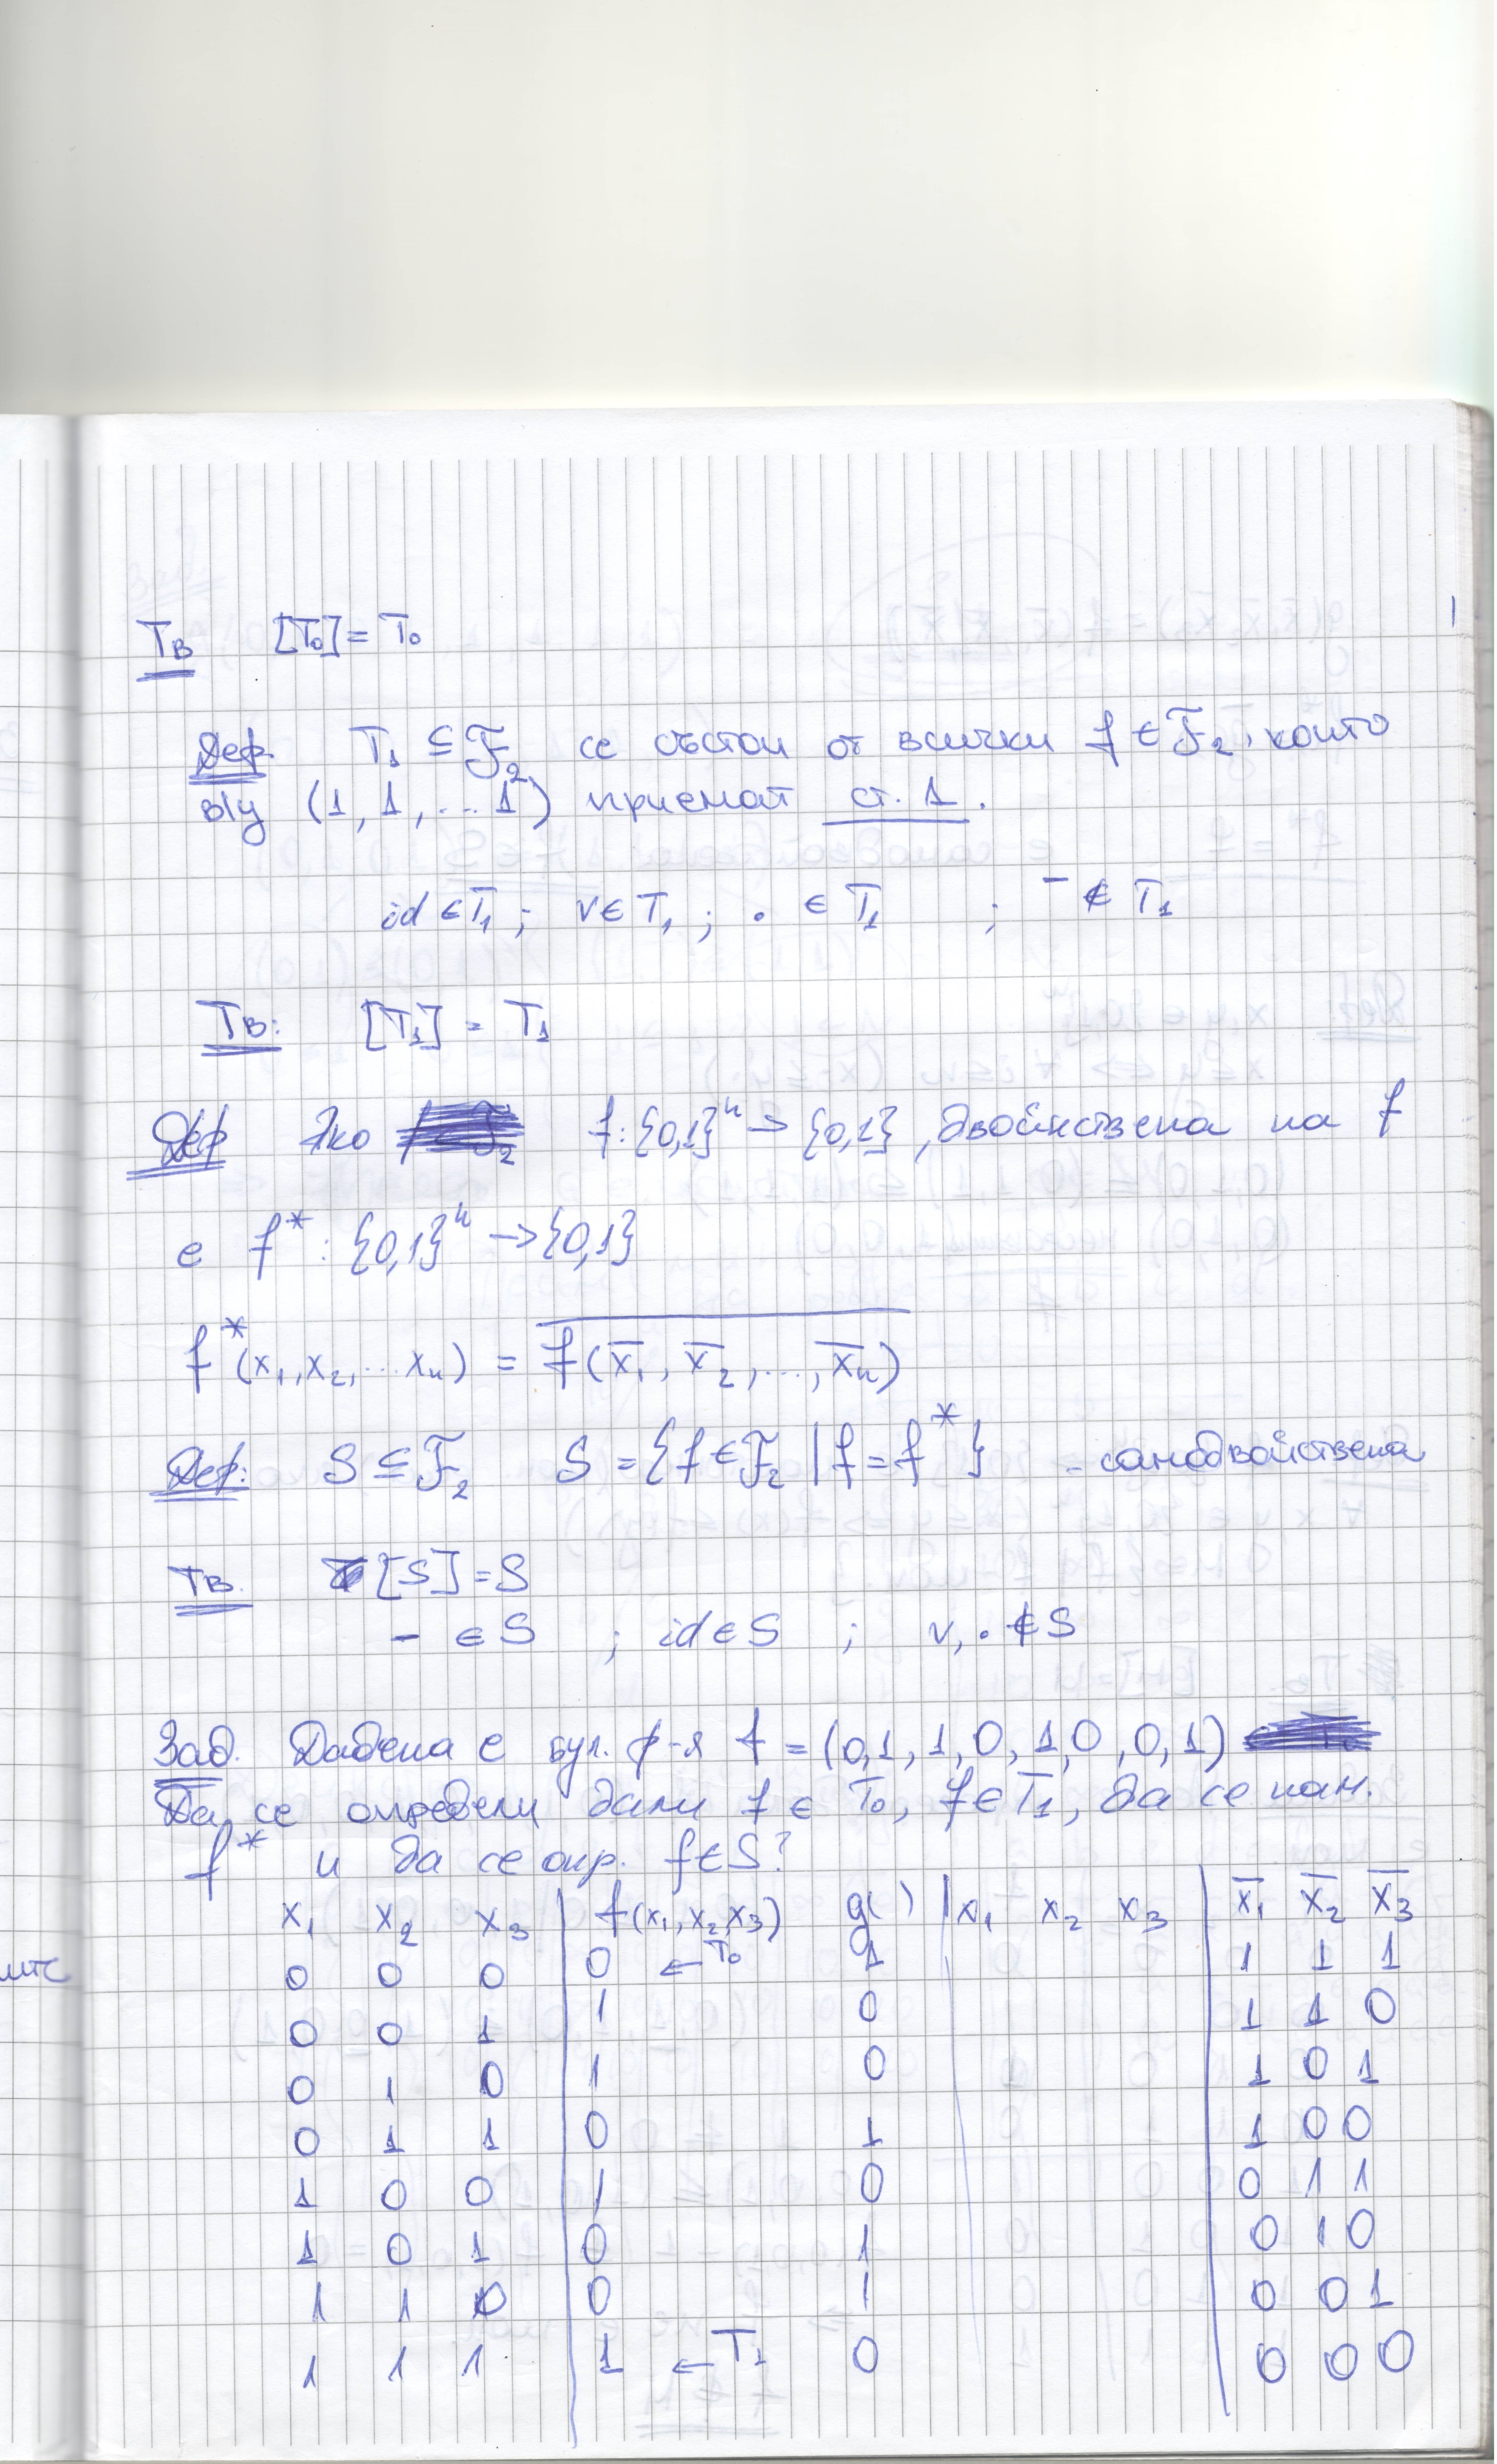 Тв [T₀] = T₀
Деф T₁ ⊆ F₂ се състои от всички f ∈ F₂, които
в/у (1, 1, ... 1) приемат ст. 1.
id ∈ T₁ ; v ∈ T₁ ; . ∈ T₁ ; ‾ ∉ T₁
Тв: [T₁] = T₁
Деф Ако f : {0,1}ⁿ → {0,1}, двойнствена на f
е f* : {0,1}ⁿ → {0,1}
f*(x₁, x₂, ... xₙ) = \overline{f(x̅₁, x̅₂, ..., x̅ₙ)}
Деф: S ⊆ F₂ S = {f ∈ F₂ | f = f*} - самодвойствена
Тв. [S] = S
‾ ∈ S ; id ∈ S ; v, . ∉ S
Зад. Дадена е бул. ф-я f = (0,1,1,0,1,0,0,1)
Да се определи дали f ∈ T₀, f ∈ T₁, да се нам.
f* и да се опр. f ∈ S?
x₁ x₂ x₃ | f(x₁, x₂, x₃) g( ) | x₁ x₂ x₃ | x̅₁ x̅₂ x̅₃
0 0 0 | 0 ← T₀ 1 | 1 1 1
0 0 1 | 1 0 | 1 1 0
0 1 0 | 1 0 | 1 0 1
0 1 1 | 0 1 | 1 0 0
1 0 0 | 1 0 | 0 1 1
1 0 1 | 0 1 | 0 1 0
1 1 0 | 0 1 | 0 0 1
1 1 1 | 1 ← T₁ 0 | 0 0 0